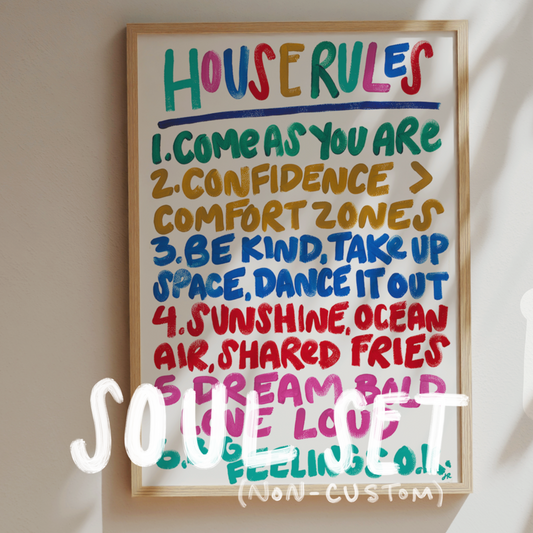 HOUSE RULES
1. COME AS YOU ARE
2. CONFIDENCE >
COMFORT ZONES
3. BE KIND, TAKE UP
SPACE, DANCE IT OUT
4. SUNSHINE, OCEAN
AIR, SHARED FRIES
5. DREAM BOLD
LOVE LOUD
6. BIG
FEELINGS O.K.
SOUL SET
(NON-CUSTOM)